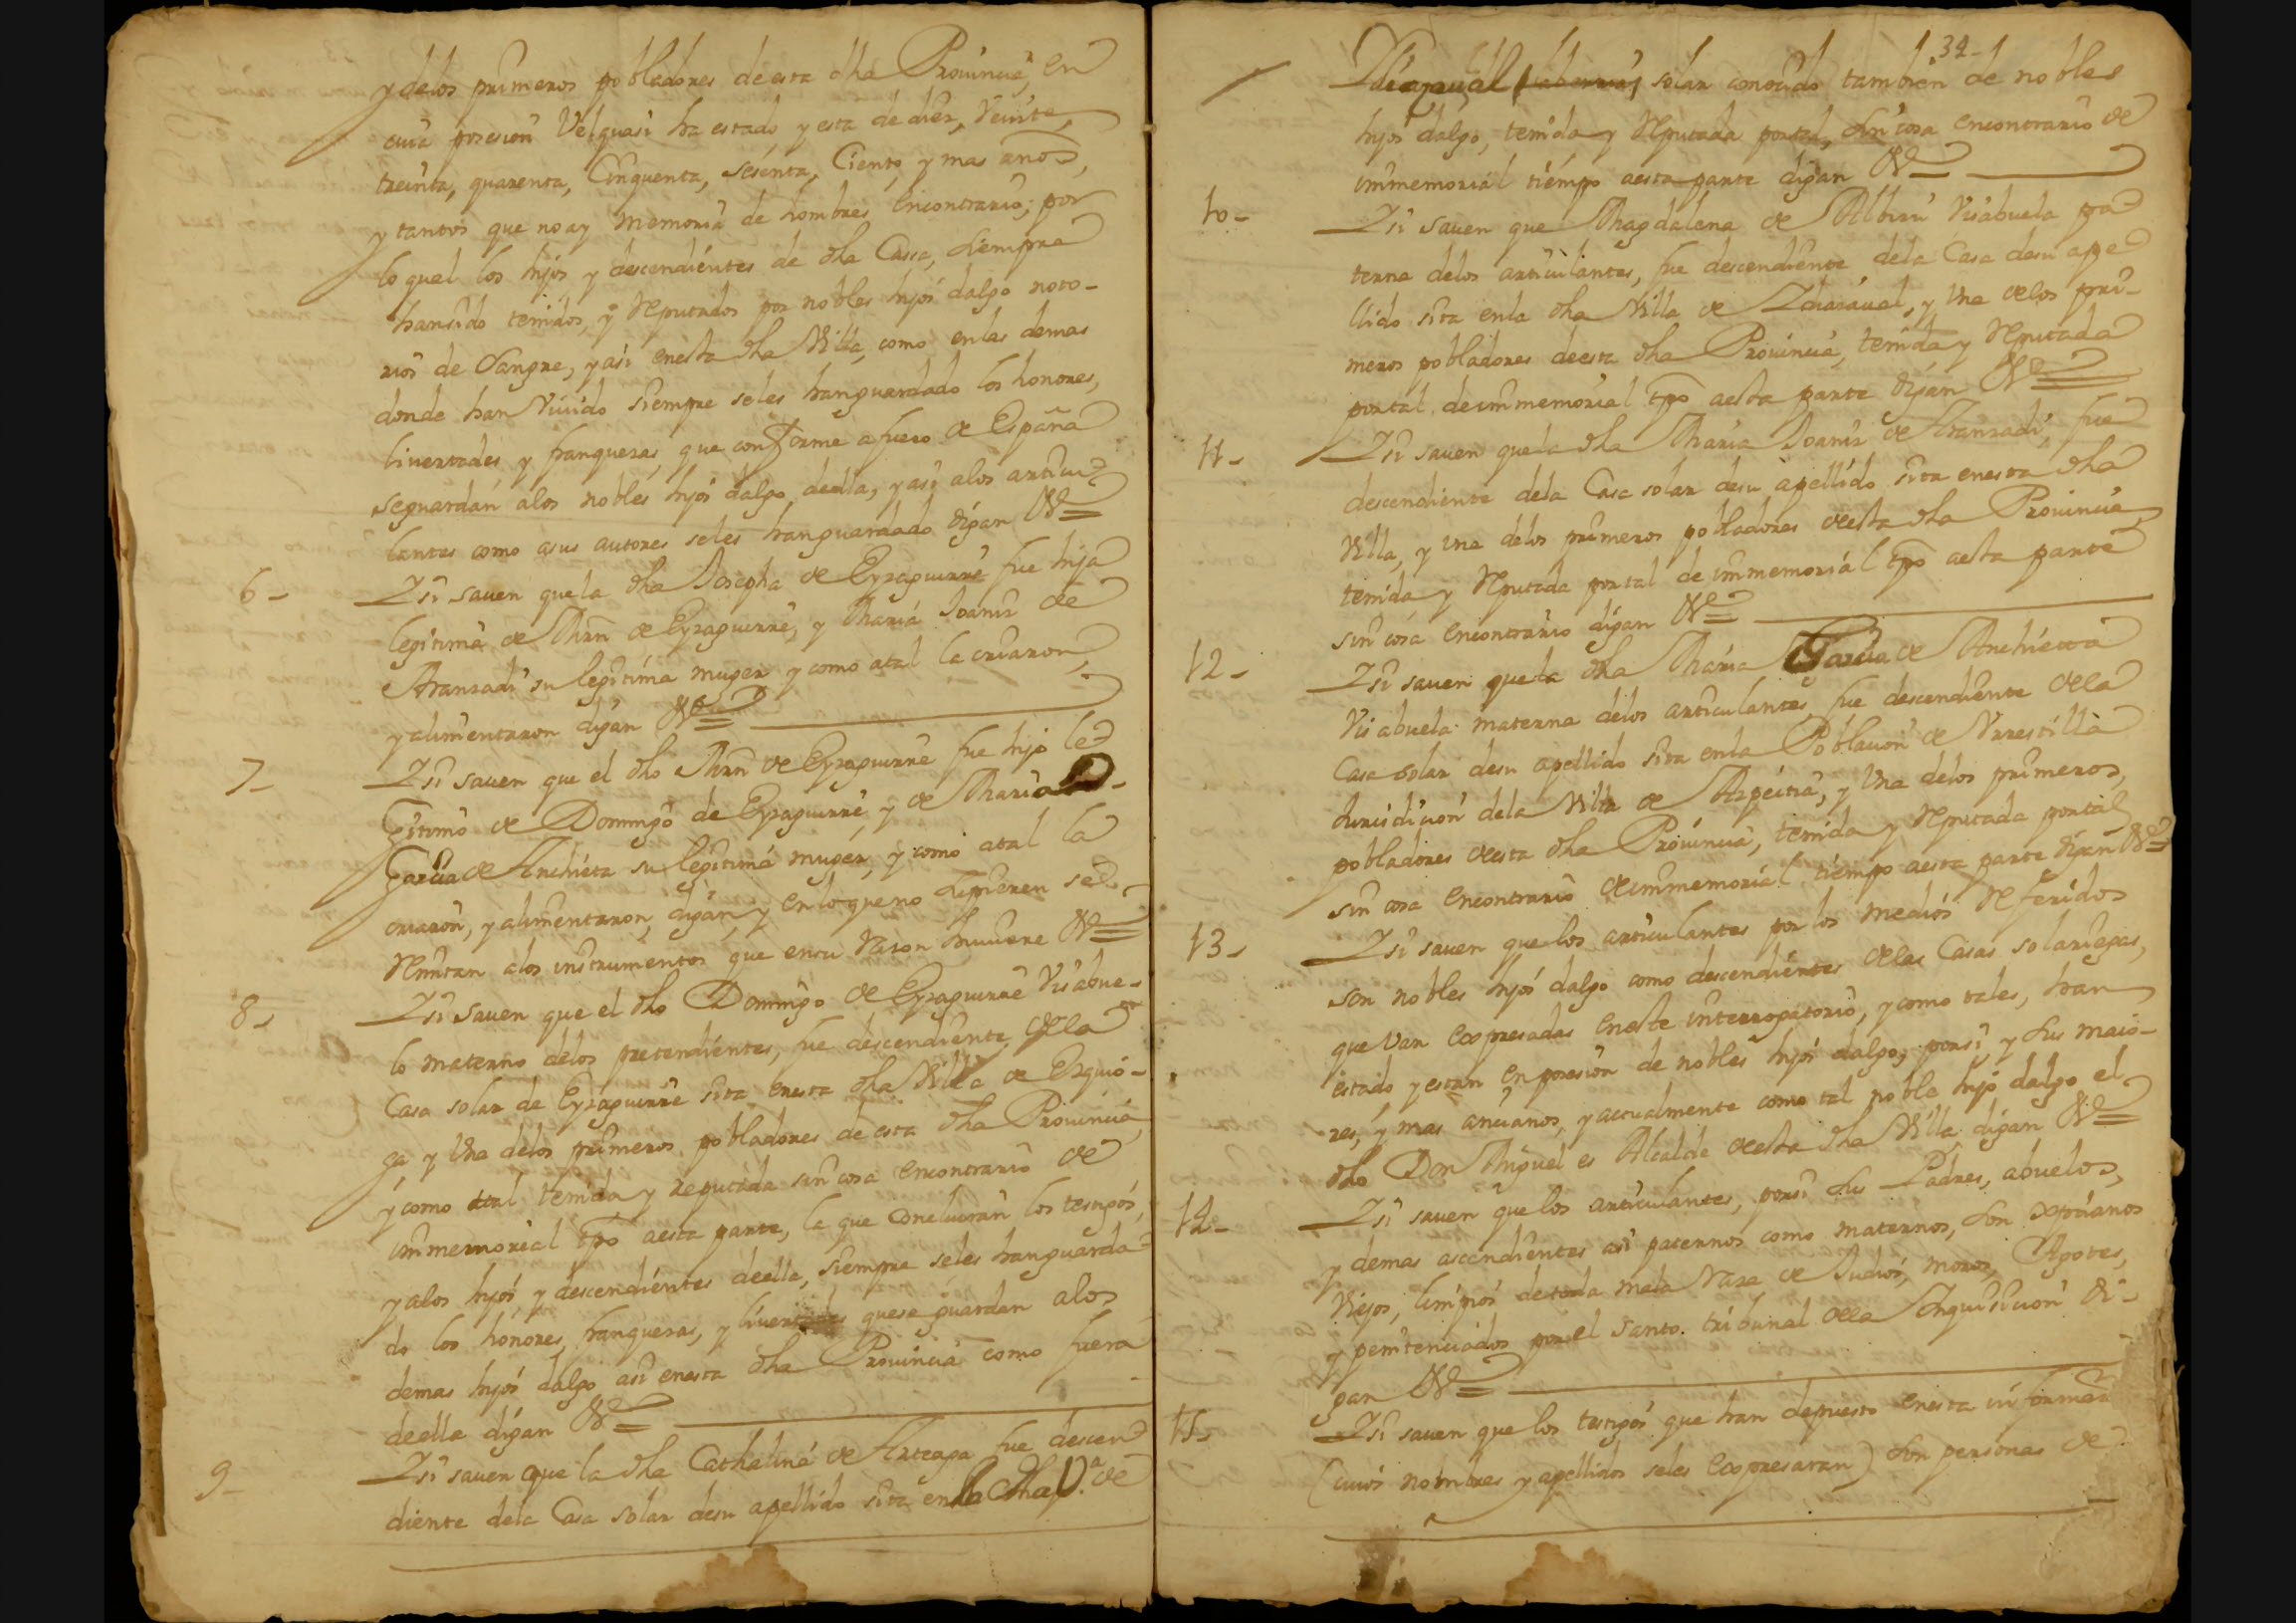 y delos primeros pobladores de esta dha Prouincia, en
cuia posesion Velquasi ha estado, y esta de diez, Veinte,
treinta, quarenta, Cinquenta, sesenta, Ciento, y mas anos,
y tantos que no ay memoria de hombres encontrario; por
lo qual los hijos y descendientes de dha Cassa, siempre
hansido tenidos, y Reputados por nobles hijos dalgo noto-
rios de Sangre, y asi enesta dha Villa, como enlas demas
donde han Viuido siempre seles hanguardado los honores,
liuertades y franquezas, que conforme a fuero de España
seguardan alos nobles hijos dalgo deella, y asi alos articu
lantes como asus autores seles hanguardado digan
6- Y si sauen quela dha Josepha de Eyzaguirre fue hija
legitima de Mrn de Eyzaguirre, y Maria Joaniz de
Aranzadi su legitima muger y como atal la criaron,
y alimentaron digan
7- Y si sauen que el dho Mrn de Eyzaguirre fue hijo le
gitimo de Domingo de Eyzaguirre, y de Maria
Garcia de Anchieta su legitima muger, y como atal la
criaron, y alimentaron, digan, y en loque no supieren se
Remitan alos instrumentos que ensu Razon huuiere
8- Y si sauen que el dho Domingo de Eyzaguirre Visabue-
lo materno delos pretendientes, fue descendiente de la
Casa solar de Eyzaguirre sita enesta dha Villa de Ezquio-
ga, y Vna delos primeros pobladores de esta dha Prouincia,
y como atal tenida, y reputada sin cosa encontrario de
immemorial tpo aesta parte, la que concluiran los testigos,
y alos hijos, y descendientes deella, siempre seles hanguarda-
do los honores, franquezas, y liuertades quese guardan alos
demas hijos dalgo asi enesta dha Prouincia como fuera
deella digan
9- Y si sauen que la dha Cathalina de Arteaga fue descen
diente dela Casa solar desu apellido sita enla dha V.ª de
34-
solar conocido tambien de nobles
hijos dalgo, tenida y Reputada portal, sin cosa encontrario de
immemorial tiempo aesta parte digan
10- Y si sauen que Magdalena de Albizu Visabuela pa
terna delos articulantes, fue descendiente dela Casa desu ape
llido sita enla dha Villa de, y Vna delos pri-
meros pobladores deesta dha Prouincia, tenida y Reputada
portal, deimmemorial tpo aesta parte digan
11- Y si sauen quela dha Maria Joaniz de Aranzadi, fue
descendiente dela Casa solar desu apellido sita enesta dha
Villa, y vna delos primeros pobladores deesta dha Prouincia,
tenida y Reputada portal de immemorial tpo aesta parte
sin cosa encontrario digan
12- Y si sauen quela dha Maria Garcia de Anchieta
Visabuela materna delos articulantes, fue descendiente dela
Casa solar desu apellido sita enla Poblacion de Vrrestilla
Jurisdicion dela Villa de Azpeitia, y Vna delos primeros,
pobladores deesta dha Prouincia, tenida y Reputada portal
sin cosa encontrario deimmemorial tiempo aesta parte digan
13- Y si sauen quelos articulantes por los medios Referidos
son nobles hijos dalgo como descendientes delas Casas solariegas,
que Van expresadas eneste interrogatorio, y como tales, han
estado y estan en posesion de nobles hijos dalgo, porsi y sus maio-
res, y mas ancianos, y actualmente como tal noble hijo dalgo el
dho Don Miguel es Alcalde deesta dha Villa digan
14- Y si sauen que los articulantes, porsi sus Padres, abuelos,
y demas ascendientes asi paternos como maternos, son xptianos
Viejos, limpios detoda mala Raza de Judios, moros, Agotes,
y penitenciados porel santo tribunal dela Inquisicion di-
gan
15- Y si sauen que los testigos que han depuesto enesta informan
(cuios nombres y apellidos seles expresaran) son personas de